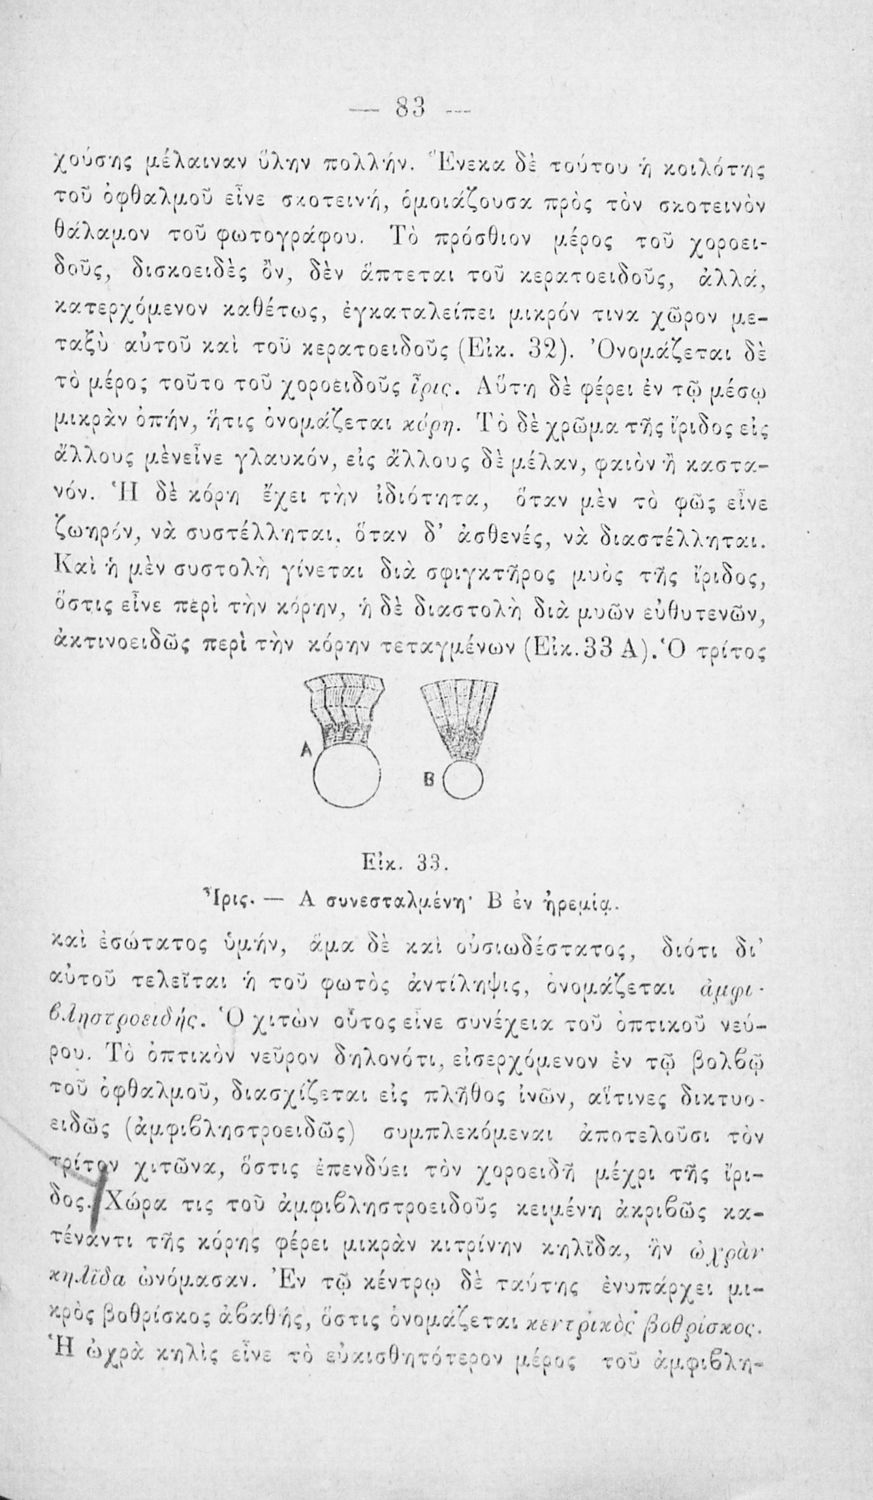 — 83 —
χούσης μέλαιναν ὕλην πολλήν. Ἕνεκα δὲ τούτου ἡ κοιλότης
τοῦ ὀφθαλμοῦ εἶνε σκοτεινή, ὁμοιάζουσα πρὸς τὸν σκοτεινὸν
θάλαμον τοῦ φωτογράφου. Τὸ πρόσθιον μέρος τοῦ χοροει-
δοῦς, δισκοειδὲς ὄν, δὲν ἅπτεται τοῦ κερατοειδοῦς, ἀλλά,
κατερχόμενον καθέτως, ἐγκαταλείπει μικρόν τινα χῶρον με-
ταξὺ αὐτοῦ καὶ τοῦ κερατοειδοῦς (Εἰκ. 32). Ὀνομάζεται δὲ
τὸ μέρος τοῦτο τοῦ χοροειδοῦς ἶρις. Αὕτη δὲ φέρει ἐν τῷ μέσῳ
μικρὰν ὀπήν, ἥτις ὀνομάζεται κόρη. Τὸ δὲ χρῶμα τῆς ἴριδος εἰς
ἄλλους μὲν εἶνε γλαυκόν, εἰς ἄλλους δὲ μέλαν, φαιὸν ἢ καστα-
νόν. Ἡ δὲ κόρη ἔχει τὴν ἰδιότητα, ὅταν μὲν τὸ φῶς εἶνε
ζωηρόν, νὰ συστέλληται, ὅταν δ' ἀσθενές, νὰ διαστέλληται.
Καὶ ἡ μὲν συστολὴ γίνεται διὰ σφιγκτῆρος μυὸς τῆς ἴριδος,
ὅστις εἶνε περὶ τὴν κόρην, ἡ δὲ διαστολὴ διὰ μυῶν εὐθυτενῶν,
ἀκτινοειδῶς περὶ τὴν κόρην τεταγμένων (Εἰκ. 33 Α). Ὁ τρίτος
A
B
Εἰκ. 33.
Ἶρις. — Α συνεσταλμένη· Β ἐν ἠρεμίᾳ.
καὶ ἐσώτατος ὑμήν, ἅμα δὲ καὶ οὐσιωδέστατος, διότι δι'
αὐτοῦ τελεῖται ἡ τοῦ φωτὸς ἀντίληψις, ὀνομάζεται ἀμφι-
βληστροειδής. Ὁ χιτὼν οὗτος εἶνε συνέχεια τοῦ ὀπτικοῦ νεύ-
ρου. Τὸ ὀπτικὸν νεῦρον δηλονότι, εἰσερχόμενον ἐν τῷ βολβῷ
τοῦ ὀφθαλμοῦ, διασχίζεται εἰς πλῆθος ἰνῶν, αἵτινες δικτυο-
ειδῶς (ἀμφιβληστροειδῶς) συμπλεκόμεναι ἀποτελοῦσι τὸν
τρίτον χιτῶνα, ὅστις ἐπενδύει τὸν χοροειδῆ μέχρι τῆς ἴρι-
δος. Χώρα τις τοῦ ἀμφιβληστροειδοῦς κειμένη ἀκριβῶς κα-
τέναντι τῆς κόρης φέρει μικρὰν κιτρίνην κηλῖδα, ἣν ὠχρὰν
κηλῖδα ὠνόμασαν. Ἐν τῷ κέντρῳ δὲ ταύτης ἐνυπάρχει μι-
κρὸς βοθρίσκος ἀβαθής, ὅστις ὀνομάζεται κεντρικὸς βοθρίσκος.
Ἡ ὠχρὰ κηλὶς εἶνε τὸ εὐαισθητότερον μέρος τοῦ ἀμφιβλη-